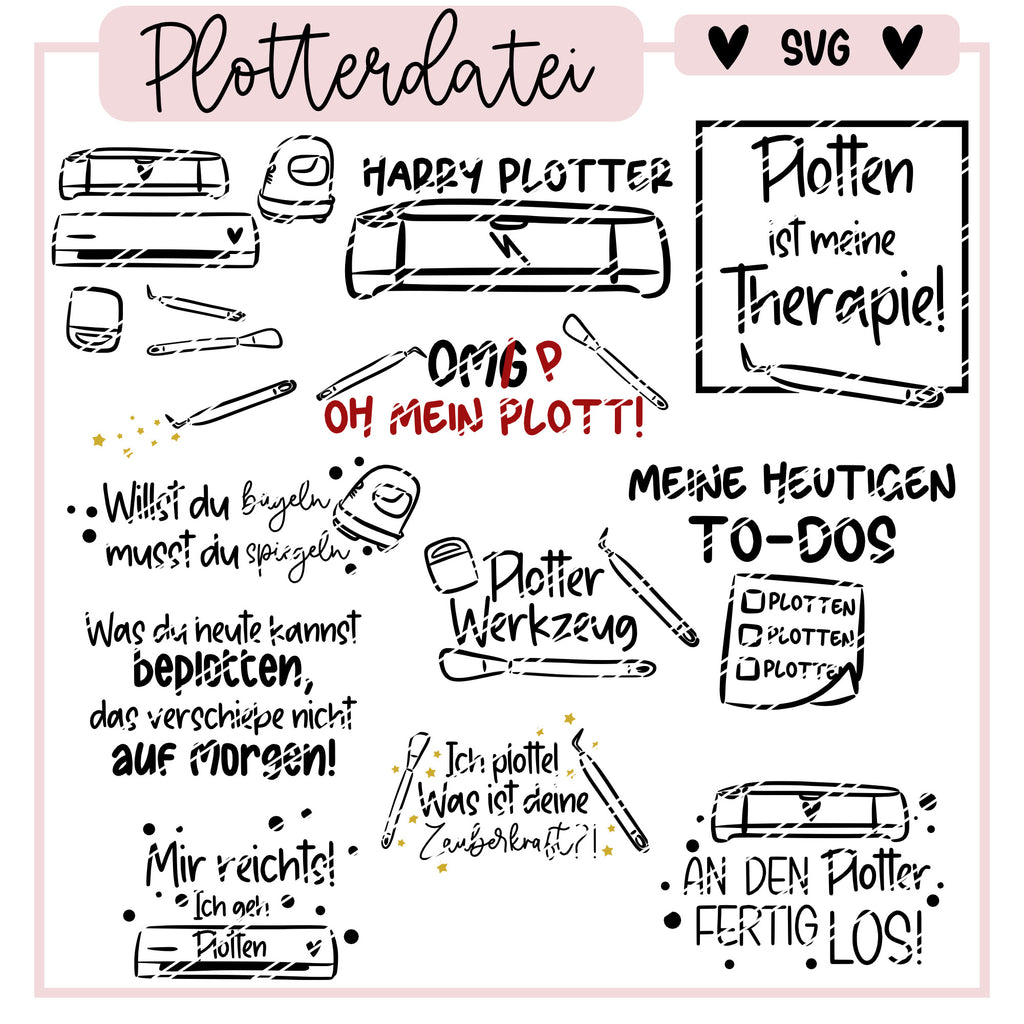 Plotterdatei
SVG
HARRY PLOTTER
Plotten
ist meine
Therapie!
OMG?
OH MEIN PLOTT!
Willst du bügeln
musst du spiegeln
MEINE HEUTIGEN
TO-DOS
PLOTTEN
PLOTTEN!
PLOTTEN
Plotter
Werkzeug
Was du heute kannst
beplotten,
das verschiebe nicht
auf Morgen!
Ich plotte!
Was ist deine
Zauberkraft?!
Mir reichts!
Ich geh
Plotten
AN DEN Plotter
FERTIG LOS!